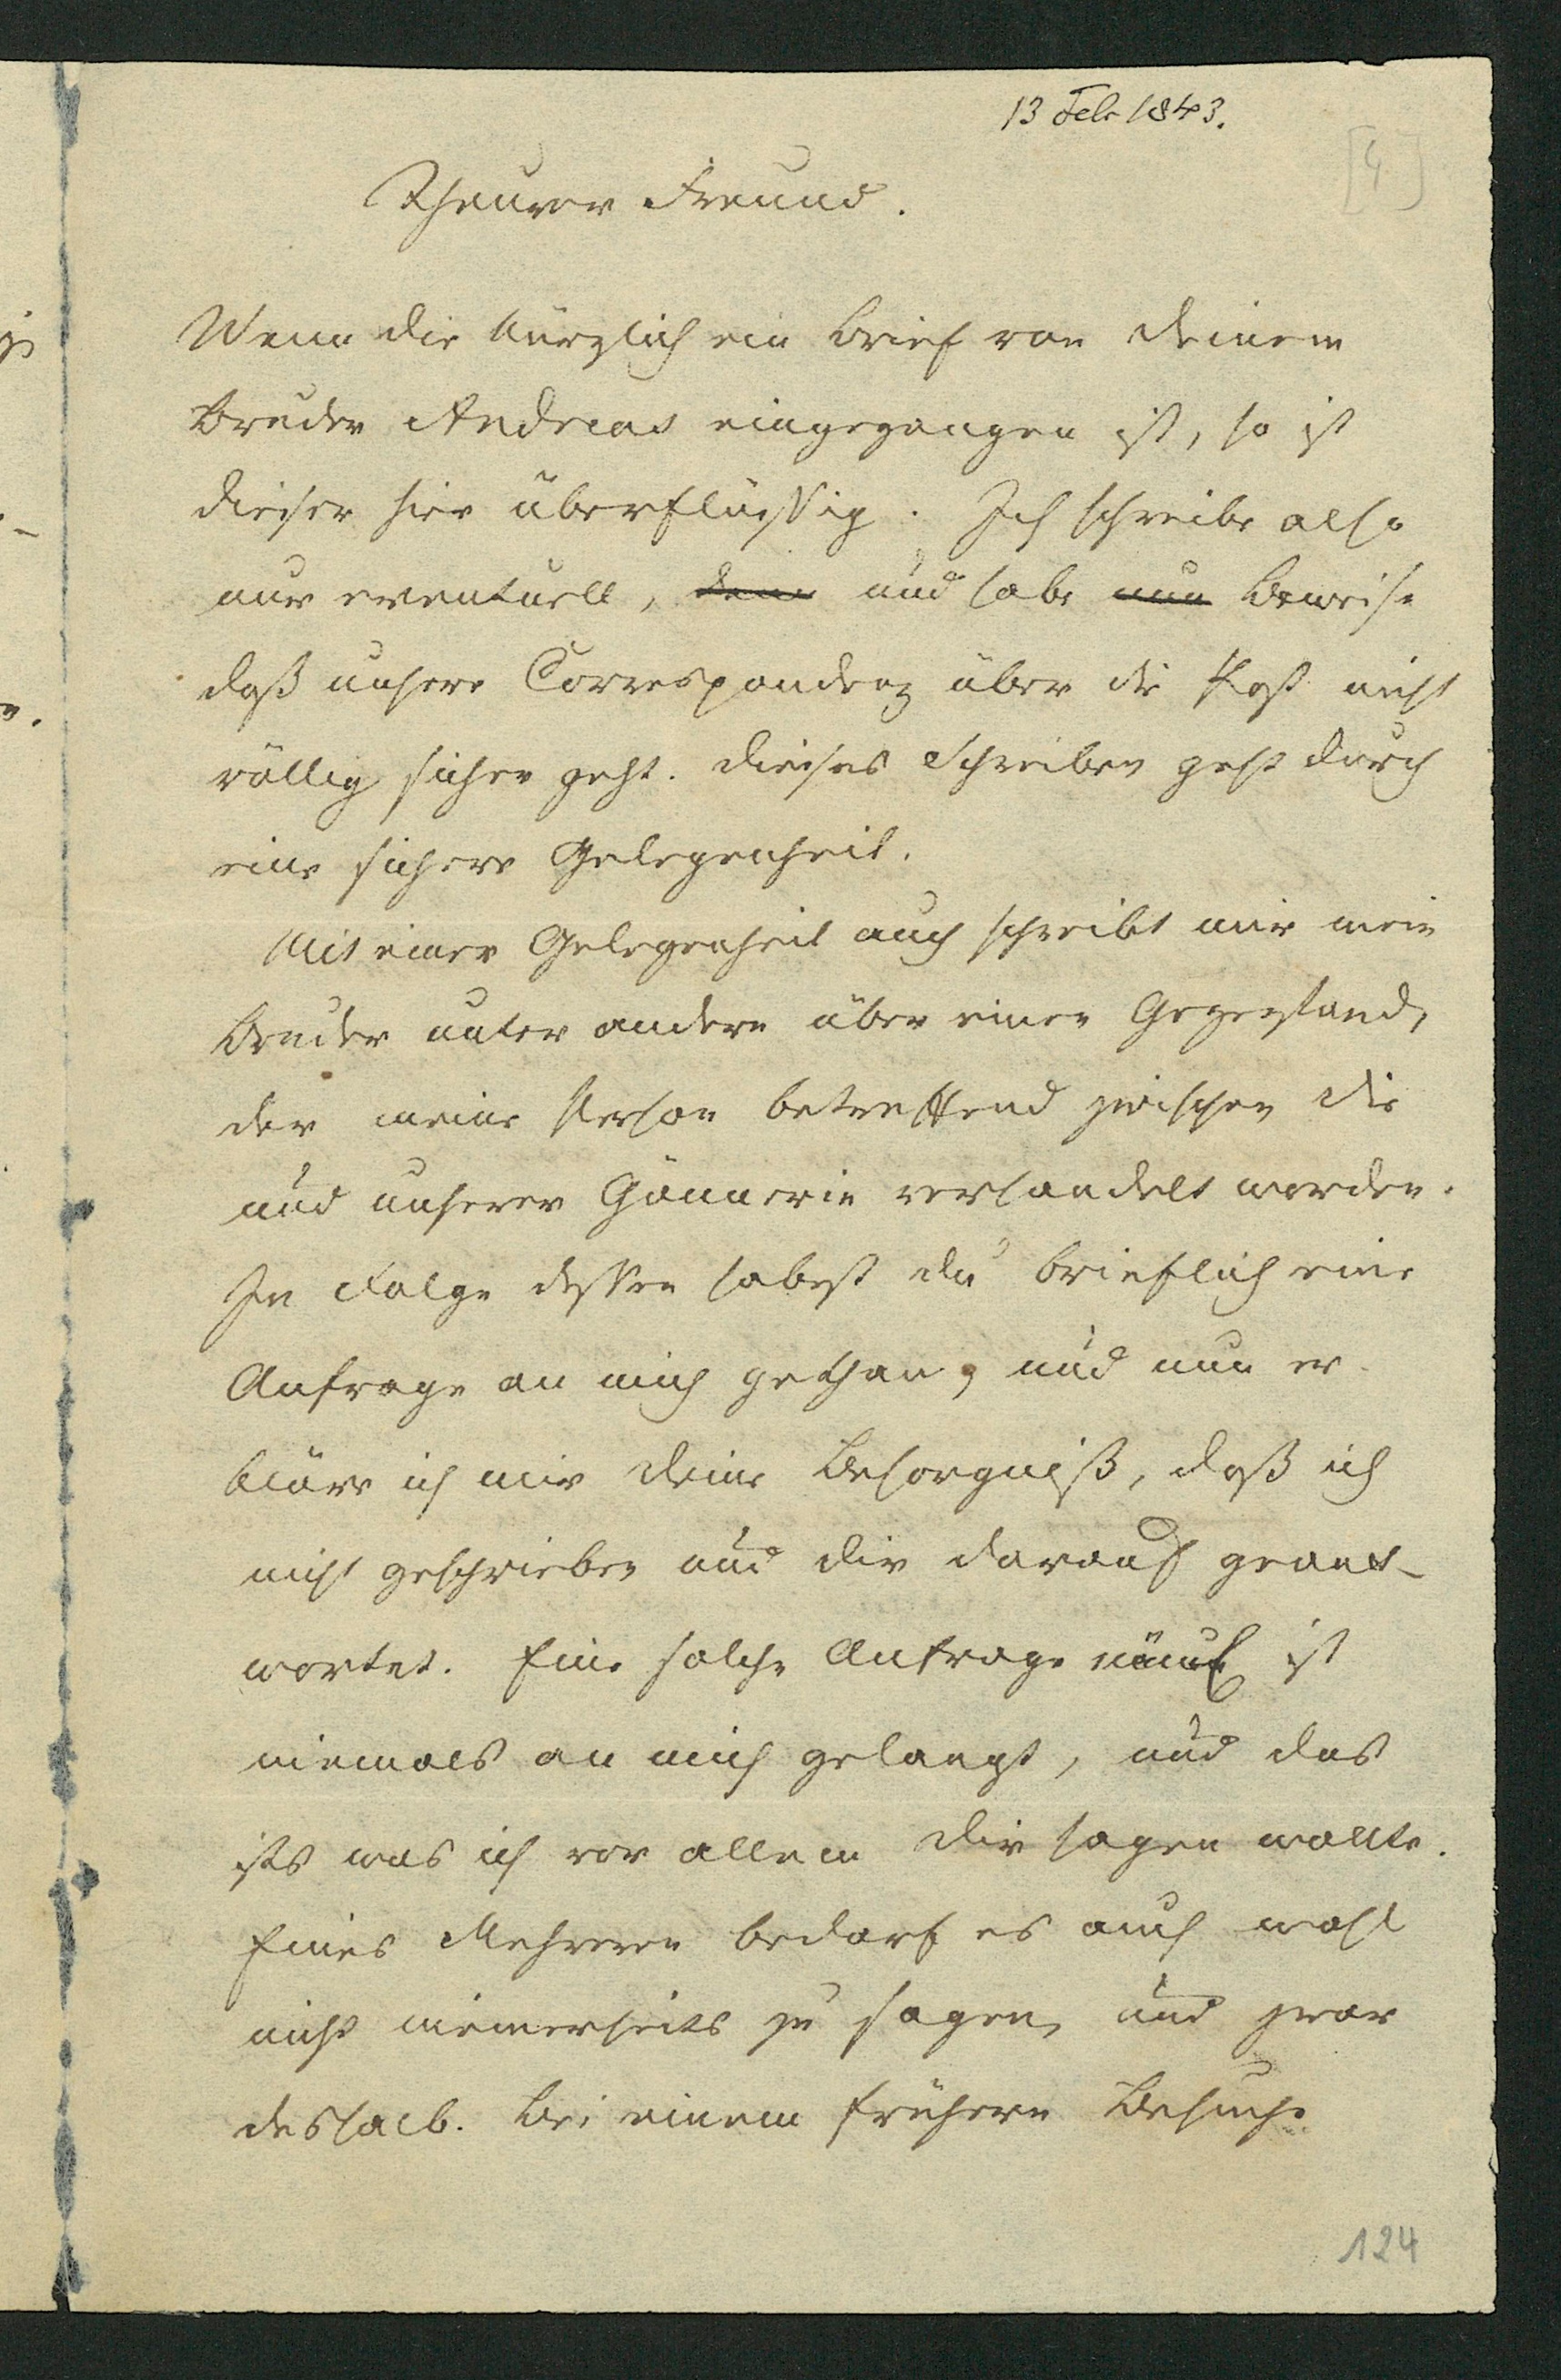 13 Feb 1843.
[4]
Theurer Freund.
Wenn dir kürzlich ein Brief von deinem
Bruder Andreas eingegangen ist, so ist
dieser hier überflüssig. Ich schreibe also
nur eventuell, denn und habe nun Beweise
daß unsere Correspondenz über die Post nicht
völlig sicher geht. Dieses Schreiben geht durch
eine sichere Gelegenheit.
Mit einer Gelegenheit auch schreibt mir mein
Bruder unter andern über einen Gegenstand,
der meine Person betreffend zwischen dir
und unserer Gönnerin verhandelt worden.
In Folge dessen habest du brieflich eine
Anfrage an mich gethan, und nun er-
kläre ich mir deine Besorgniß, daß ich
nicht geschrieben und dir darauf geant-
wortet. Eine solche Anfrage näml ist
niemals an mich gelangt, und das
ists was ich vor allem dir sagen wollte.
Eines Mehreren bedarf es auch wohl
nicht meinerseits zu sagen, und zwar
deshalb. Bei einem frühern Besuche
124